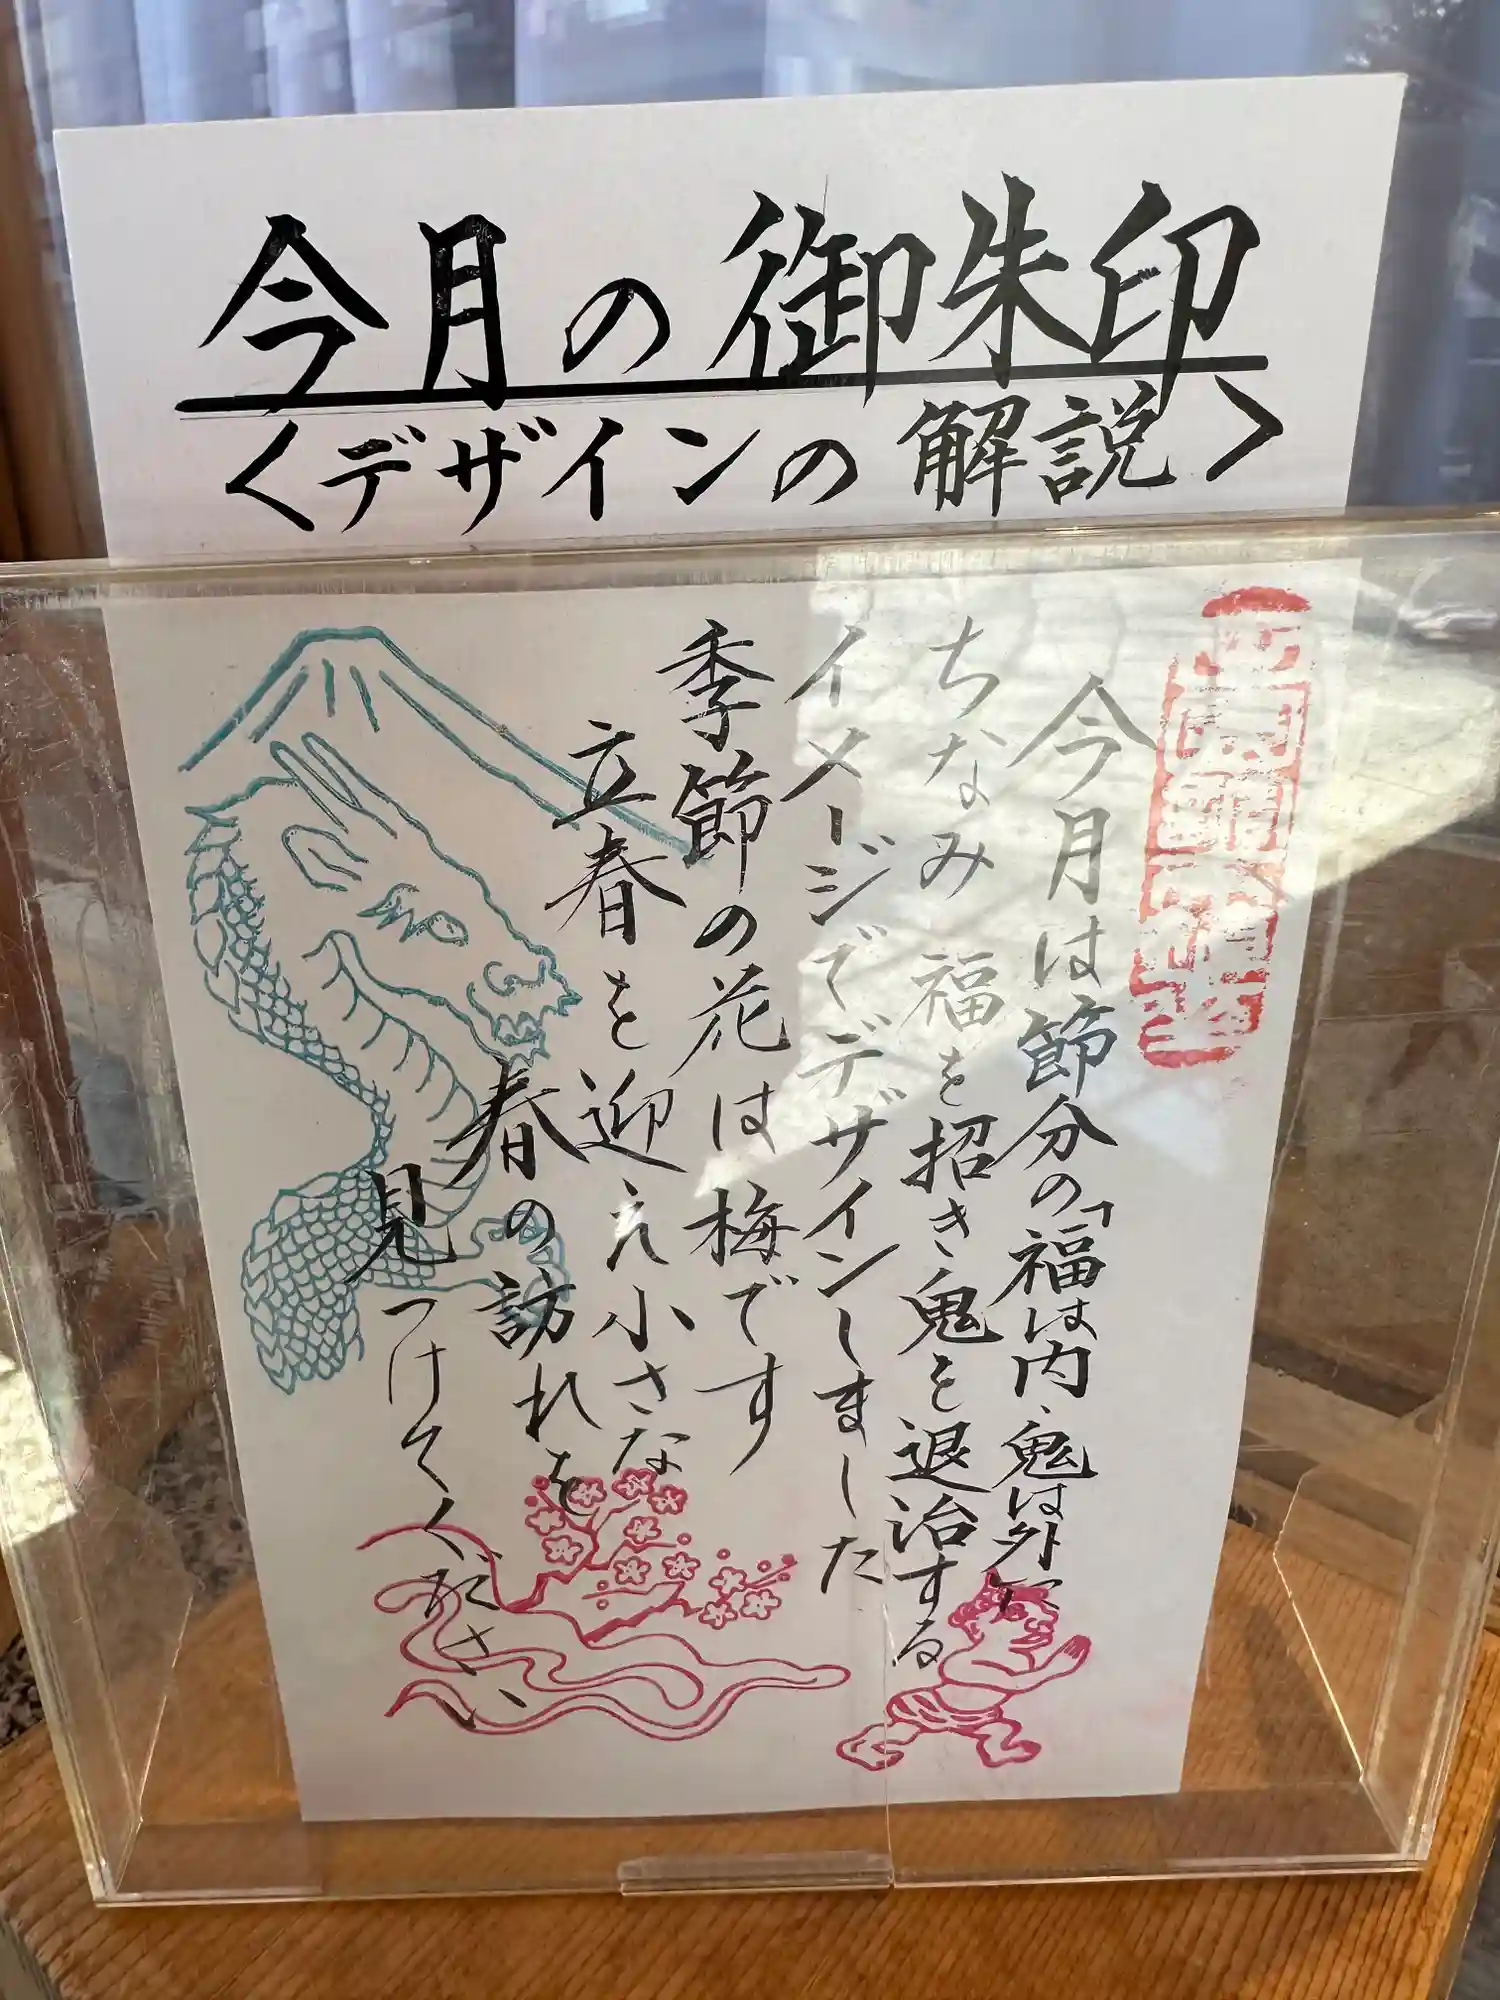 今月の御朱印
<デザインの解説>
今月は節分の「福は内、鬼は外」に
ちなみ福を招き鬼を退治する
イメージでデザインしました
季節の花は梅です
立春を迎え小さな
春の訪れを
見つけてください